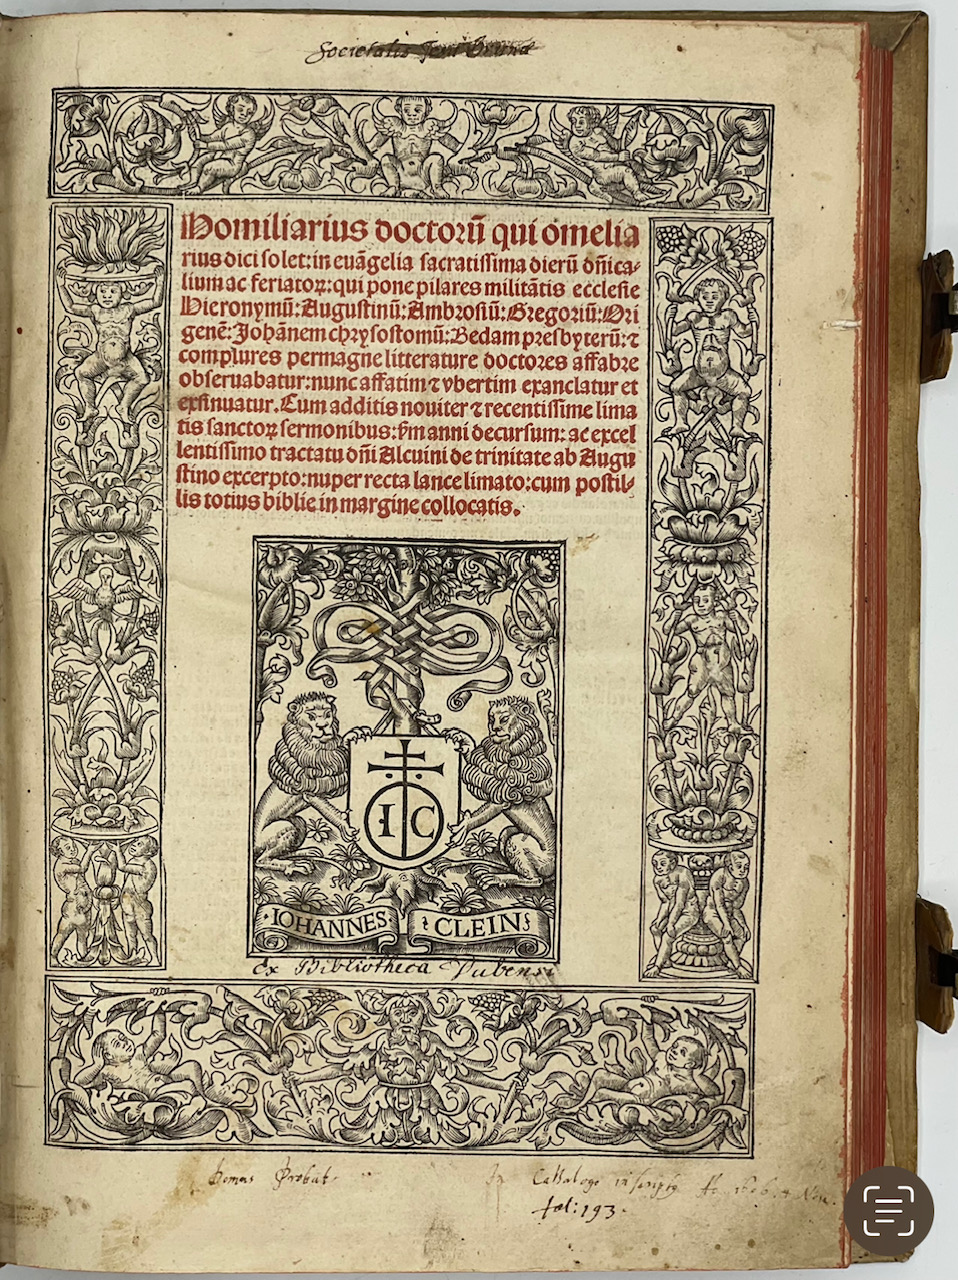 Societatis Jesu
Homiliarius doctorū qui omelia
rius dici solet: in euāgelia sacratissima dierū dn̄ica-
lium ac feriatoꝝ: qui pone pilares militātis ecclesie
Hieronymū: Augustinū: Ambrosiū: Gregoriū: Ori
genē: Johānem chrysostomū: Bedam presbyterū: ⁊
complures permagne litterature doctores affabre
obseruabatur: nunc affatim ⁊ vbertim exanclatur et
exsinuatur. Cum additis nouiter ⁊ recentissime lima
tis sanctoꝝ sermonibus: ẜm anni decursum: ac excel
lentissimo tractatu dn̄i Alcuini de trinitate ab Augu
stino excerpto: nuper recta lance limato: cum postil-
lis totius biblie in margine collocatis.
I C
·IOHANNES ⁊ CLEIN⸱
Ex Bibliotheca Dubensi
Domus Probat: In Cathalogo inscripto
fol: 193.